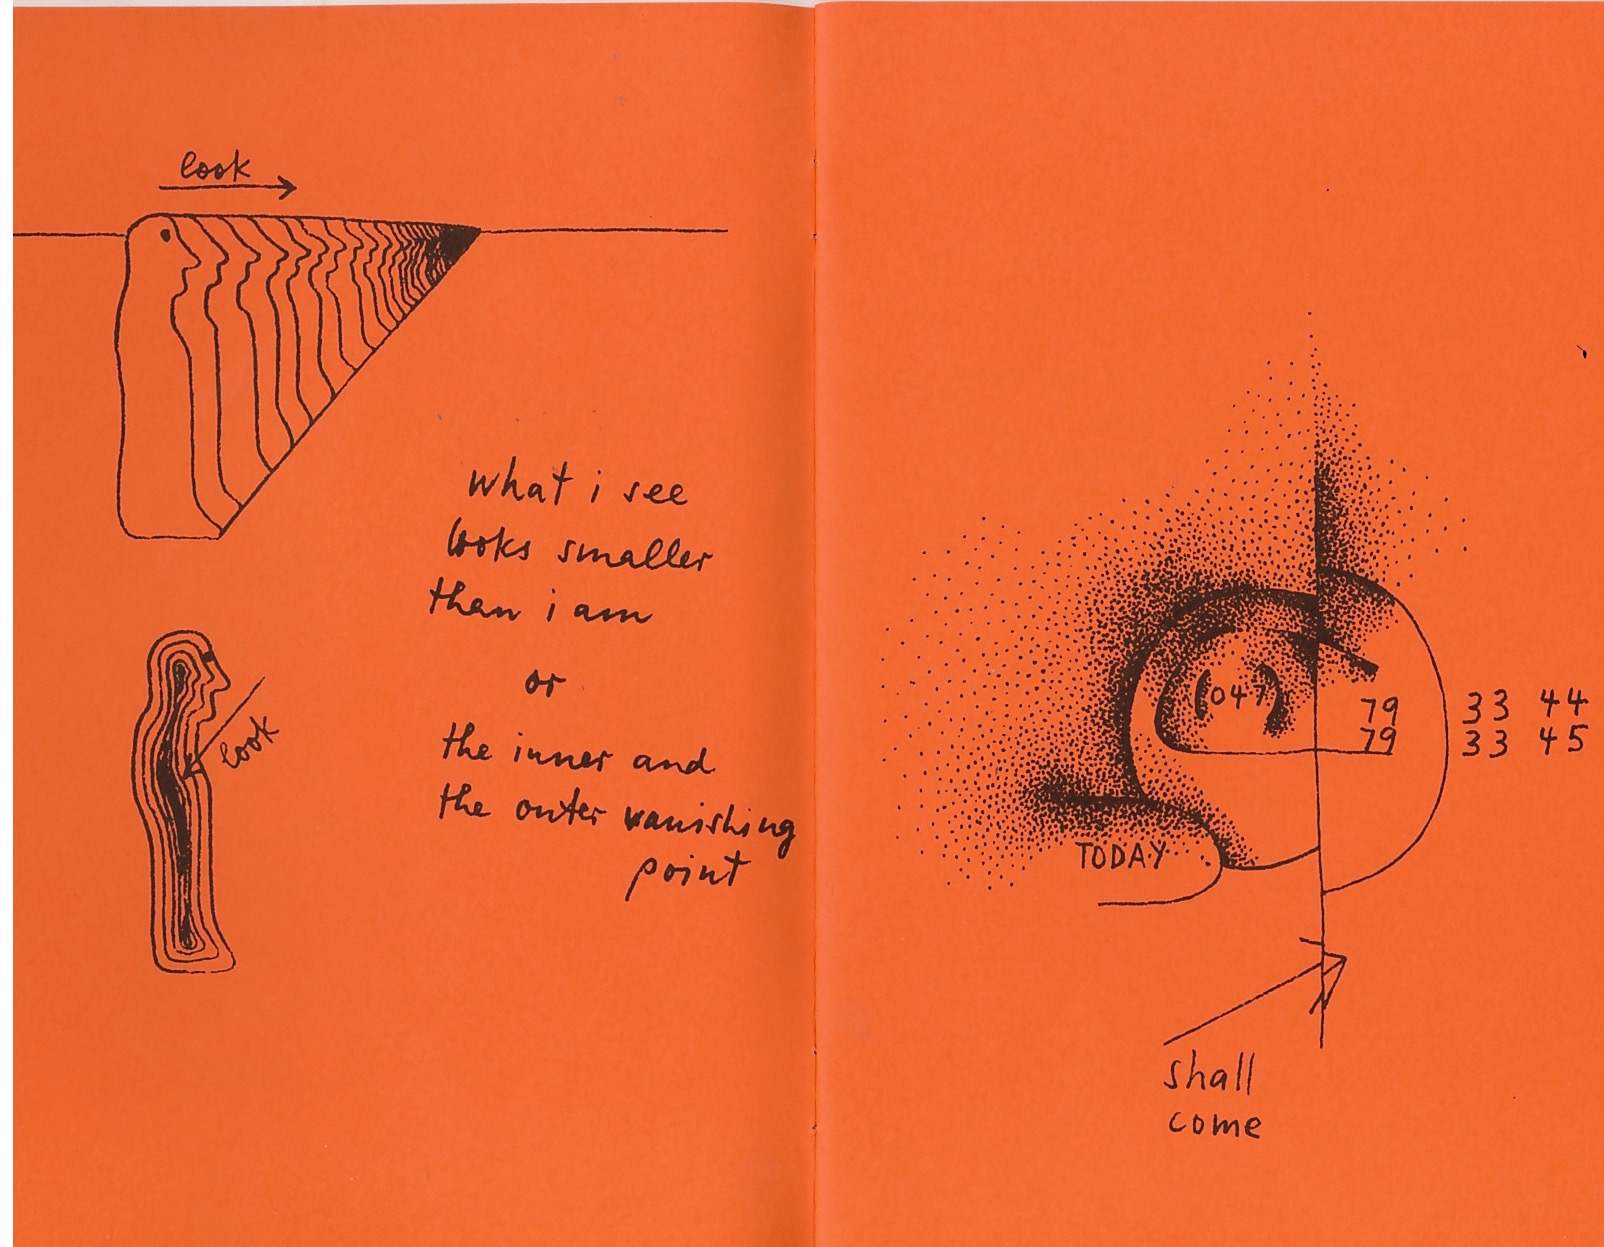 look
what i see
looks smaller
than i am
or
the inner and
the outer vanishing
point
look
(047)
79 33 44
79 33 45
TODAY
shall
come